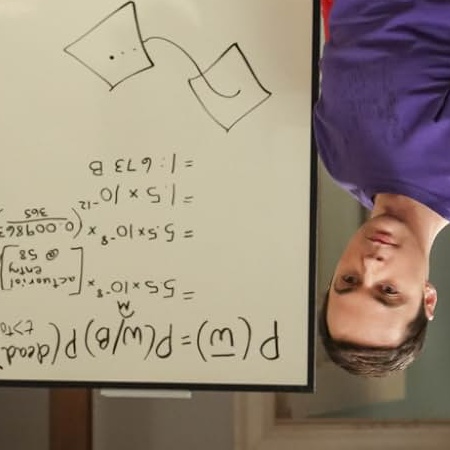 P(w̅)=P(w/B)P(dead
t>T₀
M
= 5.5×10⁻⁸ × [actuarial
entry
@ 58]
= 5.5×10⁻⁸ × (0.009863
365
= 1.5 × 10⁻¹²
= 1:673 B